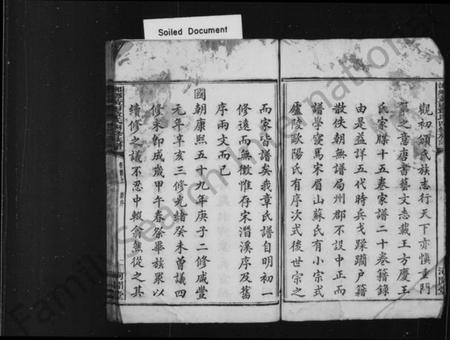 Soiled Document
觀初頒氏族志行天下亦慎重門
第之意唐書藝文志載王方慶王
氏家牒十五卷家譜二十卷籍錄
由是益詳五代時兵戈蹂躪戶籍
散佚朝無譜局州郡不設中正而
譜學寖焉宋眉山蘇氏有小宗式
廬陵歐陽氏有序次式後世宗之
而家皆譜矣我章氏譜自明初一
修遠而無徵惟存宋潛溪序及舊
序兩文而已
國朝康熙五十九年庚子二修咸豐
元年辛亥三修光緒癸未曾議四
修未卽成歲甲午春祭畢族眾以
續修之議不忍中輟僉無從之其
FamilySearch International